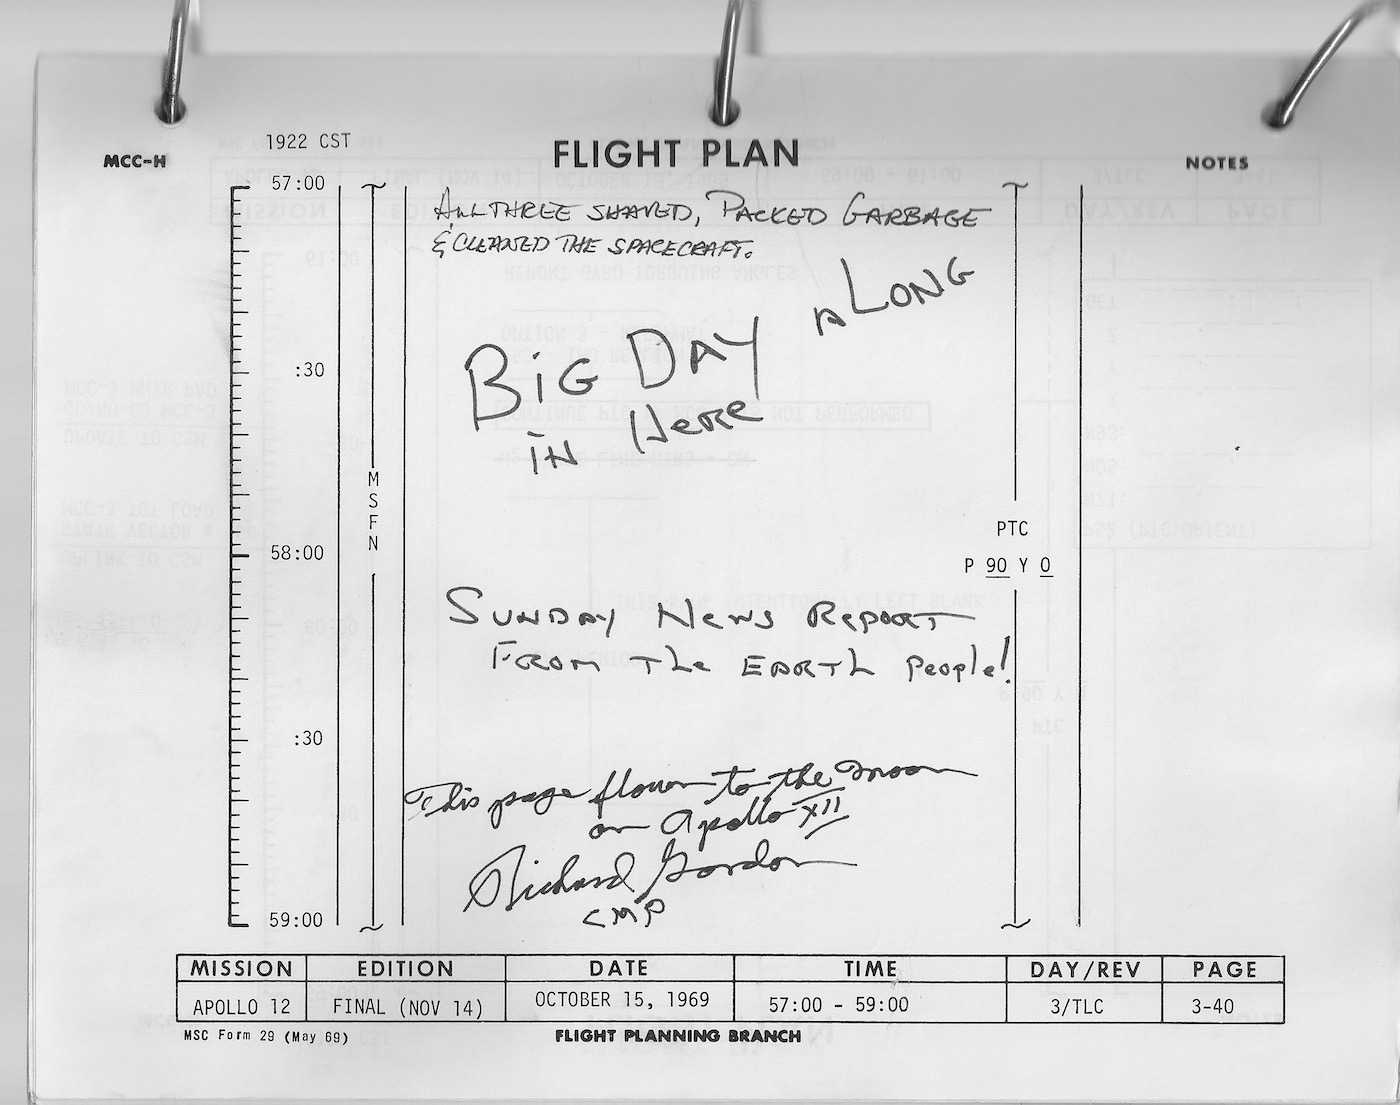 1922 CST
FLIGHT PLAN
MCC-H
NOTES
57:00
ALL THREE SHAVED, PACKED GARBAGE
& CLEANED THE SPACECRAFT.
A LONG
BIG DAY
:30
IN HERE
MSFN
PTC
58:00
P 90 Y 0
SUNDAY NEWS REPORT
FROM The EARTh People!
:30
This page flown to the moon
on Apollo XII
Richard Gordon
CMP
59:00
MISSION EDITION DATE TIME DAY/REV PAGE
APOLLO 12 FINAL (NOV 14) OCTOBER 15, 1969 57:00 - 59:00 3/TLC 3-40
MSC Form 29 (May 69) FLIGHT PLANNING BRANCH